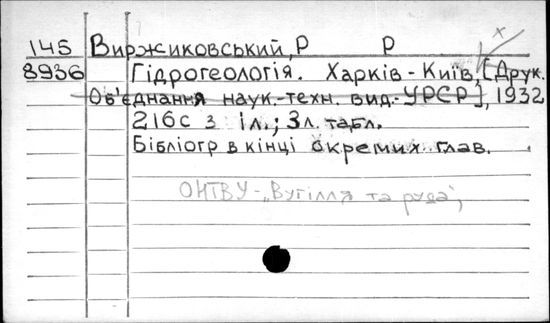 145 Виржиковський, Р Р
8936 Гідрогеологія. Харків-Київ, [Друк.
Об'єднання наук.-техн. вид.-УРСР], 1932
216с з іл.; 3л. табл.
Бібліогр в кінці окремих глав.
ОНТВУ-„Вугілля та руда",